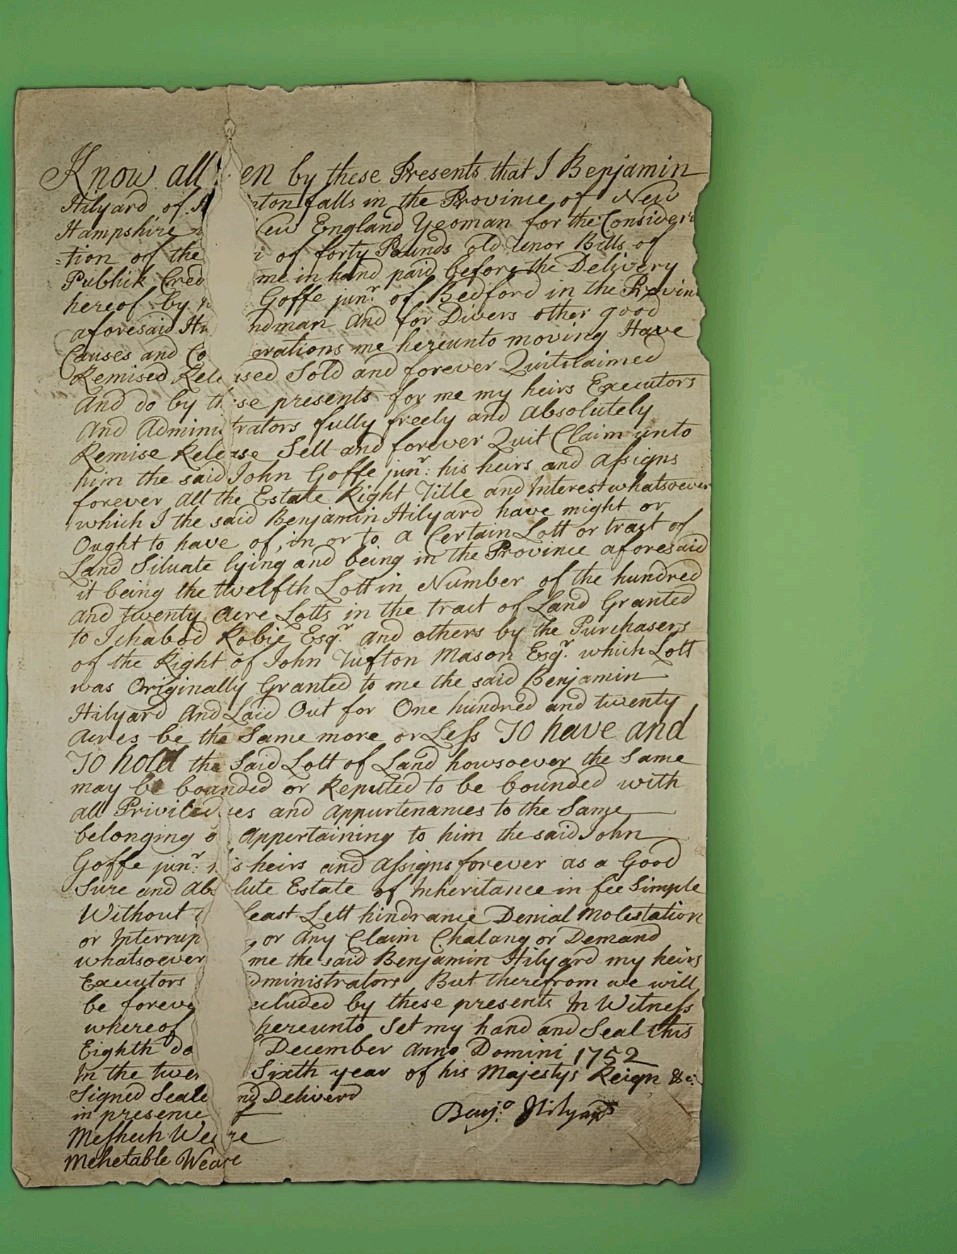 Know all en by these Presents that I Benjamin
Hilyard of ton falls in the Province of New
Hampshire ew England Yeoman for the Consider
-tion of the of forty Pounds old tenor Bills of
Publick Cred me in hand paid before the Delivery
hereof by Goffe junr. of Bedford in the Provin
aforesaid Hu ndman And for Divers other good
Causes and Co erations me hereunto moving Have
Remised Rele ised Sold and forever Quitclaimed
And do by th se presents for me my heirs Executors
And Admini trators fully freely and absolutely
Remise Release Sell and forever Quit Claim unto
him the said John Goffe junr: his heirs and assigns
forever All the Estate Right Title and Interest whatsoever
which I the said Benjamin Hilyard have might or
Ought to have of, in or to a Certain Lott or tract of
Land Situate lying and being in the Province aforesaid
it being the twelfth Lott in Number of the hundred
and twenty Acre Lotts in the tract of Land Granted
to Ichabod Robie Esqr. and others by the Purchasers
of the Right of John Tufton Mason Esqr. which Lott
was Originally Granted to me the said Benjamin
Hilyard And Laid Out for One hundred and twenty
Acres be the Same more or Less To have and
To hold the Said Lott of Land howsoever the Same
may be bounded or Reputed to be bounded with
all Priviledges and Appurtenances to the Same
belonging o Appertaining to him the said John
Goffe junr. his heirs and Assigns forever as a Good
Sure and Ab lute Estate of Inheritance in fee Simple
Without least Lett hindrance Denial Molestation
or Interrup , or Any Claim Chalang or Demand
whatsoever me the said Benjamin Hilyard my heirs
Executors dministrators But therefrom we will
be foreve cluded by these presents In Witness
whereof hereunto Set my hand and Seal this
Eighth da December Anno Domini 1752
In the twen Sixth year of his Majestys Reign &c:
Signed Seale nd Deliverd
in presence Benja. Hilyard
Meshech Weare
Mehetable Weare